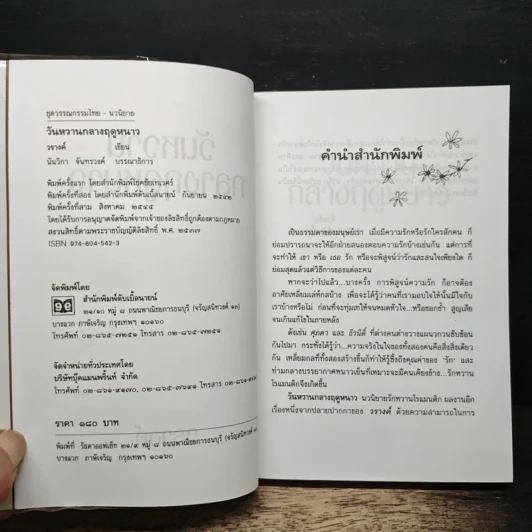 ชุดวรรณกรรมไทย - นวนิยาย
วันหวานกลางฤดูหนาว
วรางค์ เขียน
นันวิภา จันทรวงศ์ บรรณาธิการ
พิมพ์ครั้งแรก โดยสำนักพิมพ์โชคชัยเทเวศร์
พิมพ์ครั้งที่สอง โดยสำนักพิมพ์ดับเบิ้ลนายน์ กันยายน ๒๕๔๒
พิมพ์ครั้งที่สาม สิงหาคม ๒๕๔๔
โดยได้รับการอนุญาตจัดพิมพ์จากเจ้าของลิขสิทธิ์ถูกต้องตามกฎหมาย
สงวนสิทธิ์ตามพระราชบัญญัติลิขสิทธิ์ พ.ศ. ๒๕๓๗
ISBN 974-604-542-3
จัดพิมพ์โดย
สำนักพิมพ์ดับเบิ้ลนายน์
๒๑/๑๐ หมู่ ๘ ถนนพาณิชยการธนบุรี (จรัญสนิทวงศ์ ๑๓)
บางแวก ภาษีเจริญ กรุงเทพฯ ๑๐๑๖๐
โทรศัพท์ ๐๒-๘๖๕-๗๒๕๑ โทรสาร ๐๒-๘๖๕-๗๒๕๑
จัดจำหน่ายทั่วประเทศโดย
บริษัทบุ๊คแมนพริ้นท์ จำกัด
โทร. ๐๒-๘๖๕-๗๖๕๑ โทรสาร
ราคา ๑๘๐ บาท
พิมพ์ที่ ๒๑/๘ หมู่ ๘ ถนนพาณิชยการธนบุรี (จรัญสนิทวงศ์
บางแวก ภาษีเจริญ กรุงเทพฯ ๑๐๑๖๐
คำนำสำนักพิมพ์
เป็นธรรมดาของมนุษย์เรา เมื่อมีความรักหรือรักใครสักคน ก็
ย่อมปรารถนาจะให้อีกฝ่ายสนองตอบความรักบ้างเช่นกัน แต่การที่
จะทำให้ เขา หรือ เธอ รัก หรือจะพิสูจน์ว่ารักและสนใจเพียงใด ก็
ย่อมสุดแล้วแต่วิธีการของแต่ละคน
หากจะว่าไปแล้ว...บางครั้ง การพิสูจน์ความรัก ก็อาจต้อง
อาศัยเหลี่ยมเล่ห์กลบ้าง เพื่อจะได้รู้ว่าคนที่เรามอบใจให้นั้นมีใจกับ
เราบ้างหรือไม่ ก่อนที่จะทุ่มเทให้จนหมดหัวใจ...หรือชอกช้ำ สูญเสีย
จนเกินแก้ไขในภายหลัง
ดังเช่น ศุภดา และ ธีรนิติ์ ที่ต่างคนต่างวางแผนวกวนซับซ้อน
กันไปมา กระทั่งได้รู้ว่า...ความจริงในใจของทั้งสองคนคือสิ่งสิ่งเดียว
กัน เหลี่ยมกลที่ทั้งสองสร้างขึ้นก็ทำให้รู้ซึ้งถึงคุณค่าของ 'รัก' และ
ท่ามกลางบรรยากาศหนาวเย็นที่เหมาะจะมีคนเคียงข้าง...รักหวาน
โรแมนติกจึงเกิดขึ้น
วันหวานกลางฤดูหนาว นวนิยายรักหวานโรแมนติก ผลงานอีก
เรื่องหนึ่งจากปลายปากกาของ วรางค์ ด้วยความสามารถในการ